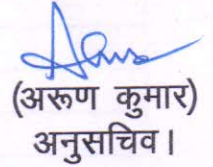 (अरूण कुमार)
अनुसचिव।